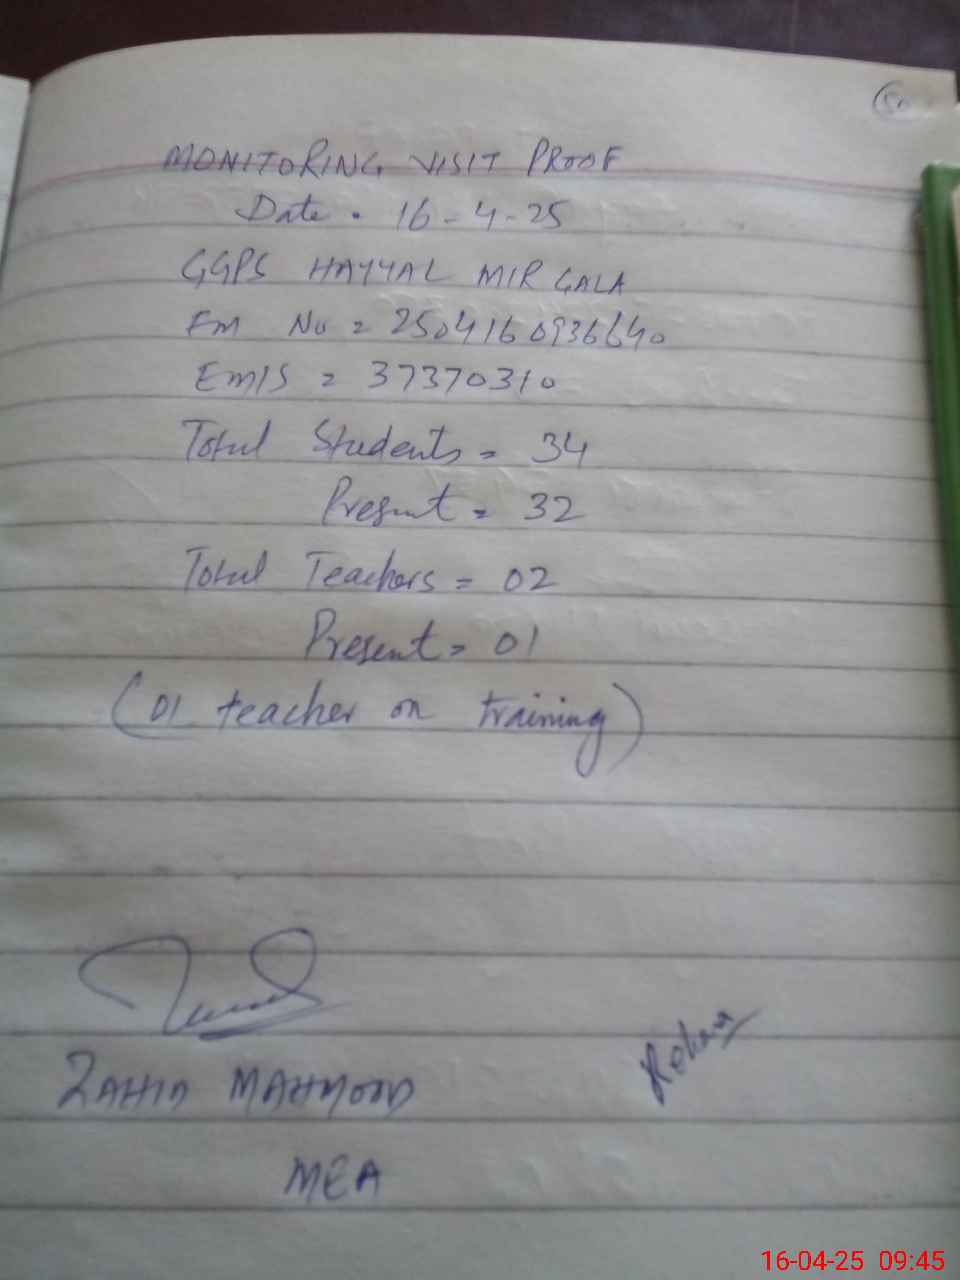 MONITORING VISIT PROOF
Date . 16-4-25
GGPS HAYYAL MIR GALA
FM No = 250416 0936640
EMIS = 37370310
Total Students = 34
Present = 32
Total Teachers = 02
Present = 01
(01 teacher on training)
ZAHID MAHMOOD
MEA
16-04-25 09:45